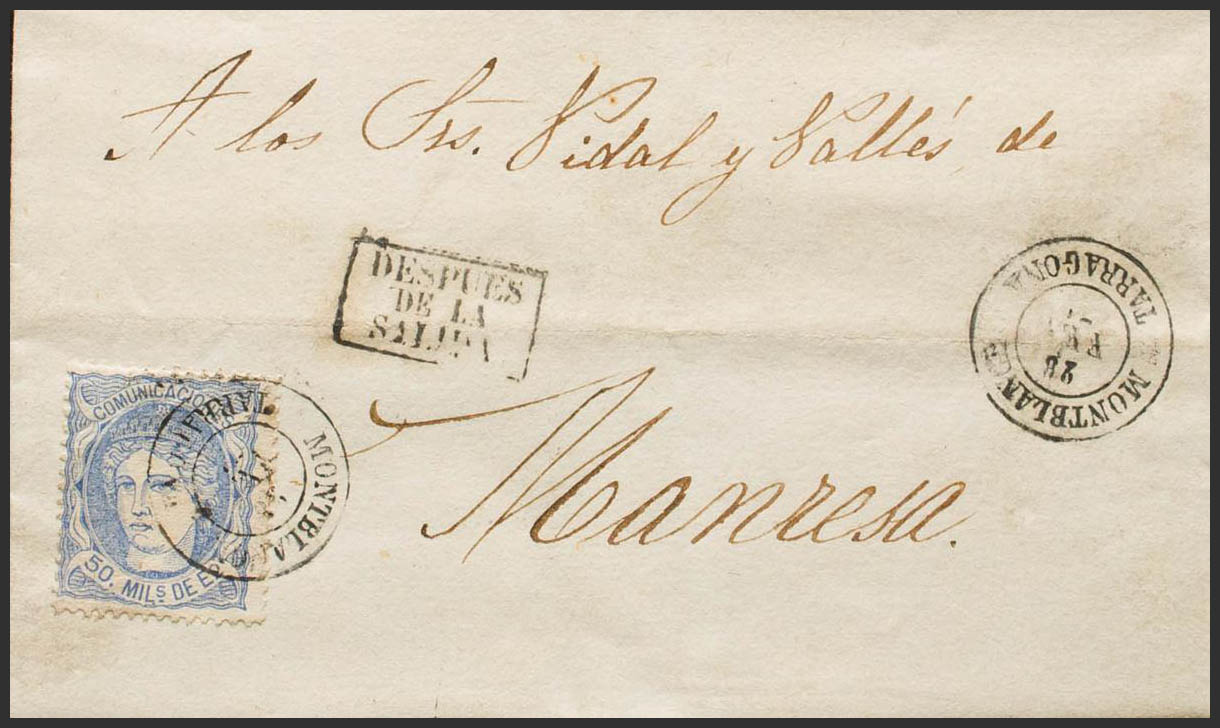 A los Srs. Vidal y Vallés de
DESPUES
DE LA
SALIDA
TARRAGONA
28
FEB
MONTBLANCH
COMUNICACIONES
MONTBLANCH
50. MILS DE E
Manresa.